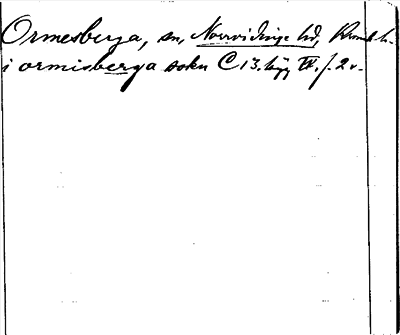 Ormesberga, sn, Norrvidinge hd, Kronob. l.
i ormisberga sokn C 13. hyy IV. f. 2 v.